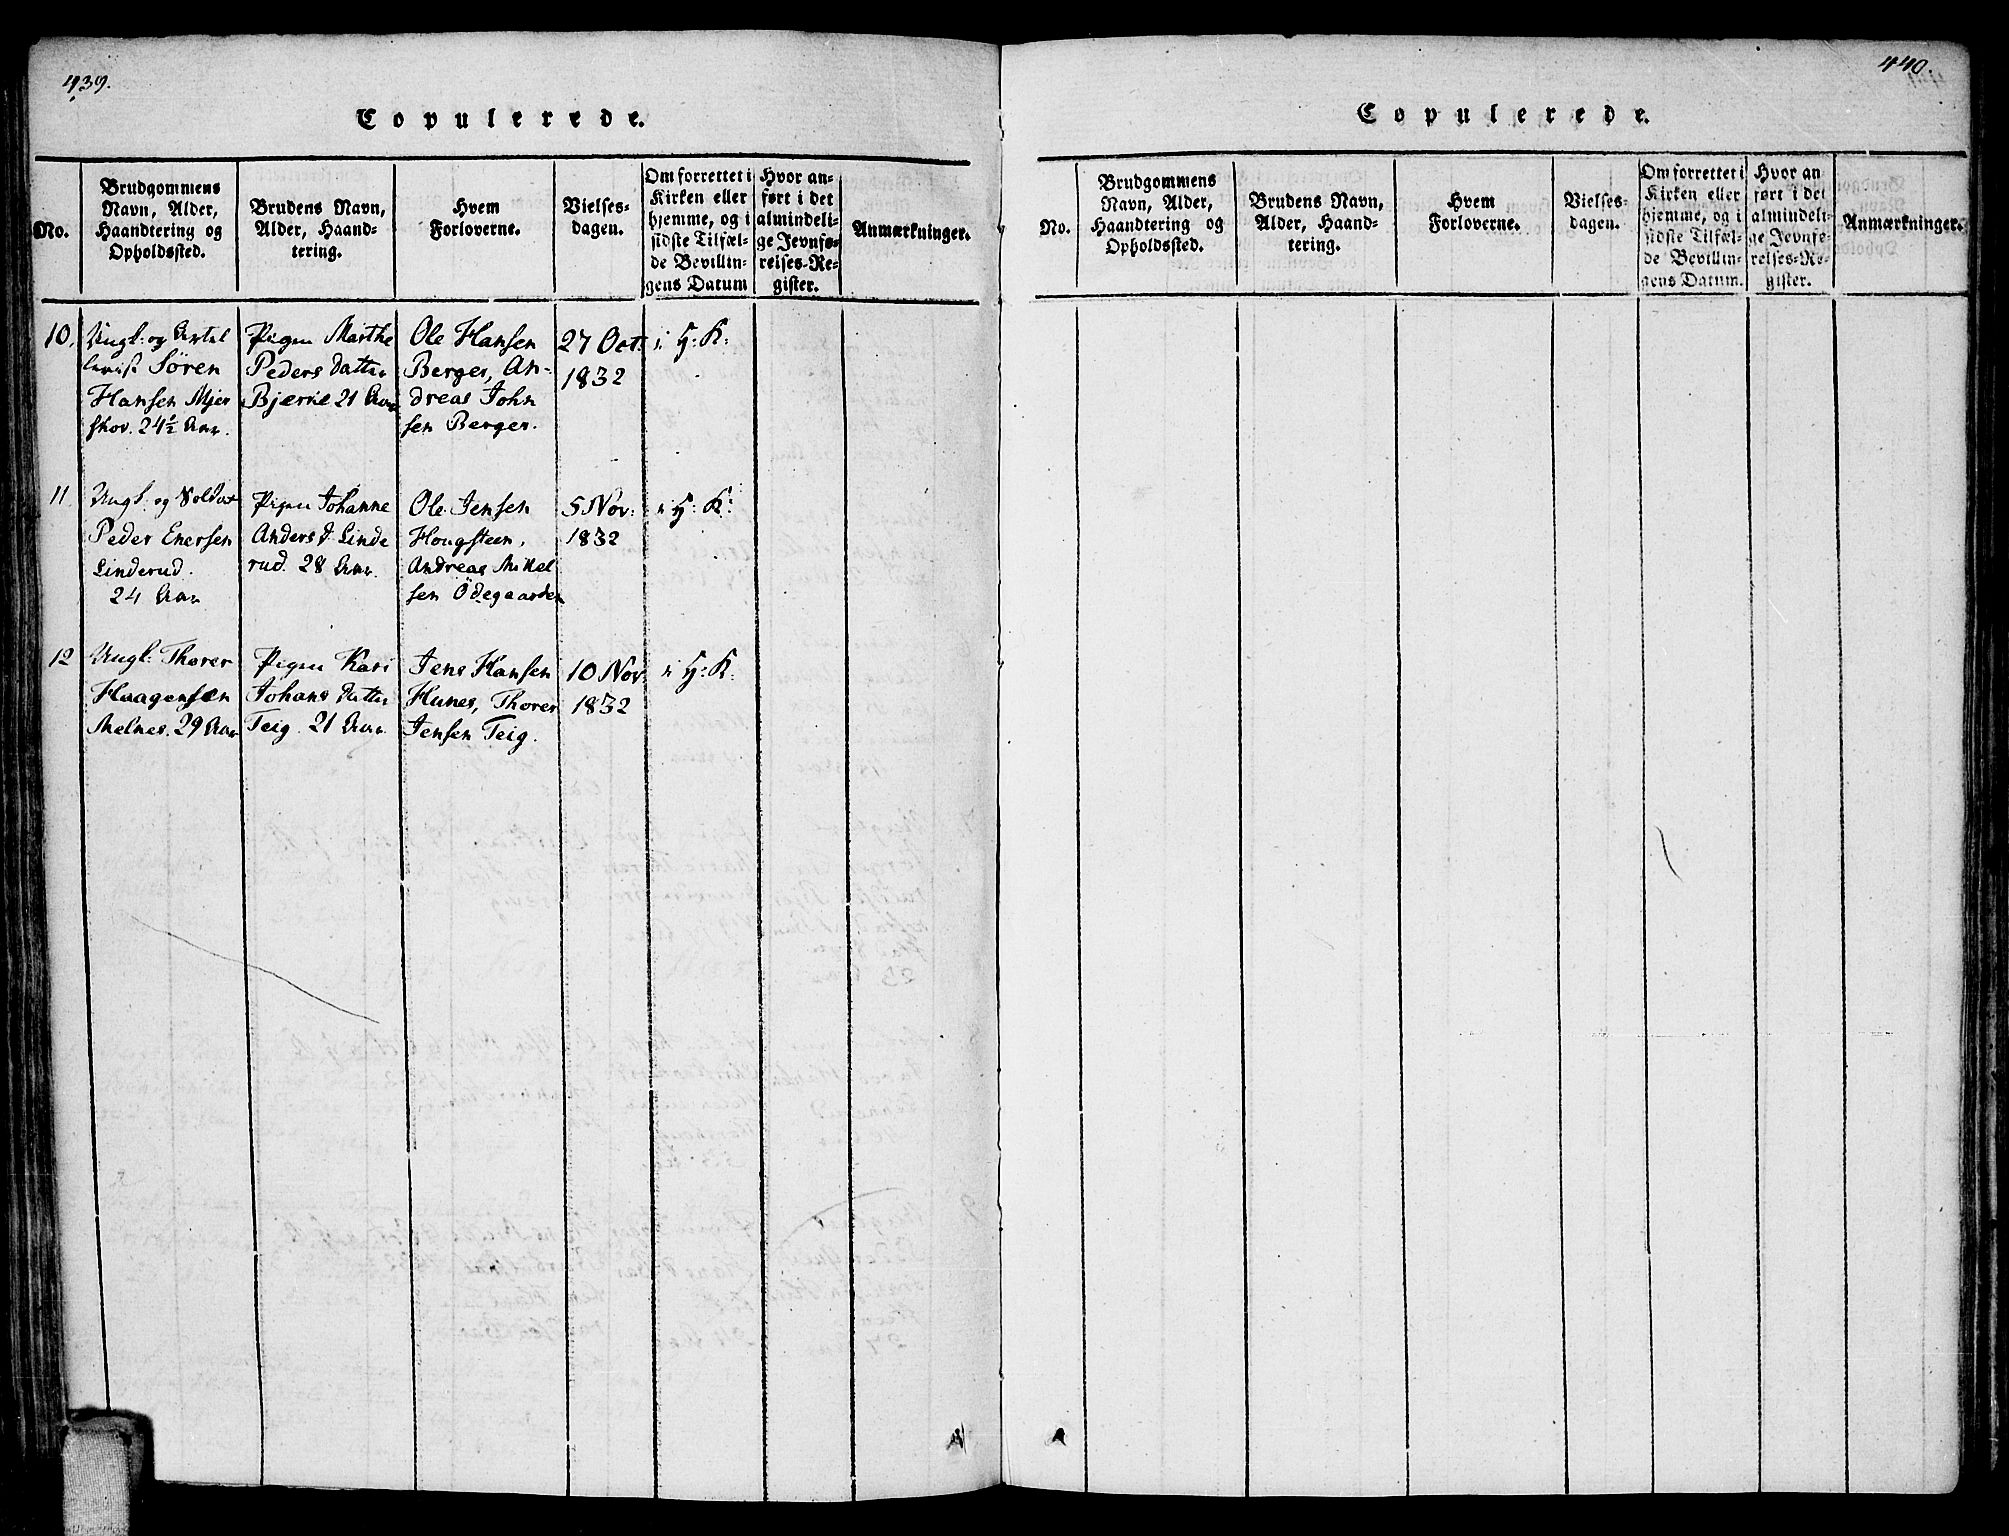 439.
Copulerede.
No.
Brudgommens
Navn, Alder,
Haandtering og
Opholdssted.
Brudens Navn,
Alder, Haand-
tering.
Hvem
Forloverne.
Vielses-
dagen.
Om forrettet i
Kirken eller
hjemme, og i
sidste Tilfæl-
de Bevillin-
gens Datum
Hvor an-
ført i det
almindeli-
ge Jevnfø-
relses-Re-
gister.
Anmærkninger.
10.
Ungk: og Artel
lerist Sören
Hansen Mjer
skov. 24½ Aar.
Pigen Marthe
Peders Datter
Bjærke 21 Aar
Ole Hansen
Berger, An-
dreas John
sen Berger.
27 Oct:
1832
i H: K:
11
Ungk: og Soldat
Peder Enersen
Linderud.
24 Aar
Pigen Johanne
Anders d. Linde
rud. 28 Aar.
Ole Jensen
Hougsteen,
Andreas Mikel
sen Ödegaarden
5 Nov:
1832
i H: K:
12
Ungk: Thorer
Haagensen
Melnes. 29 Aar
Pigen Kari
Johans Datter
Teig. 21 Aar.
Jens Hansen
Hunes, Thorer
Jensen Teig.
10 Nov:
1832
i H: K:
440.
Copulerede.
No.
Brudgommens
Navn, Alder,
Haandtering og
Opholdssted.
Brudens Navn,
Alder, Haand-
tering.
Hvem
Forloverne.
Vielses-
dagen.
Om forrettet i
Kirken eller
hjemme, og i
sidste Tilfæl-
de Bevillin-
gens Datum.
Hvor an
ført i det
almindeli-
ge Jevnfø-
relses-Re-
gister.
Anmærkninger.